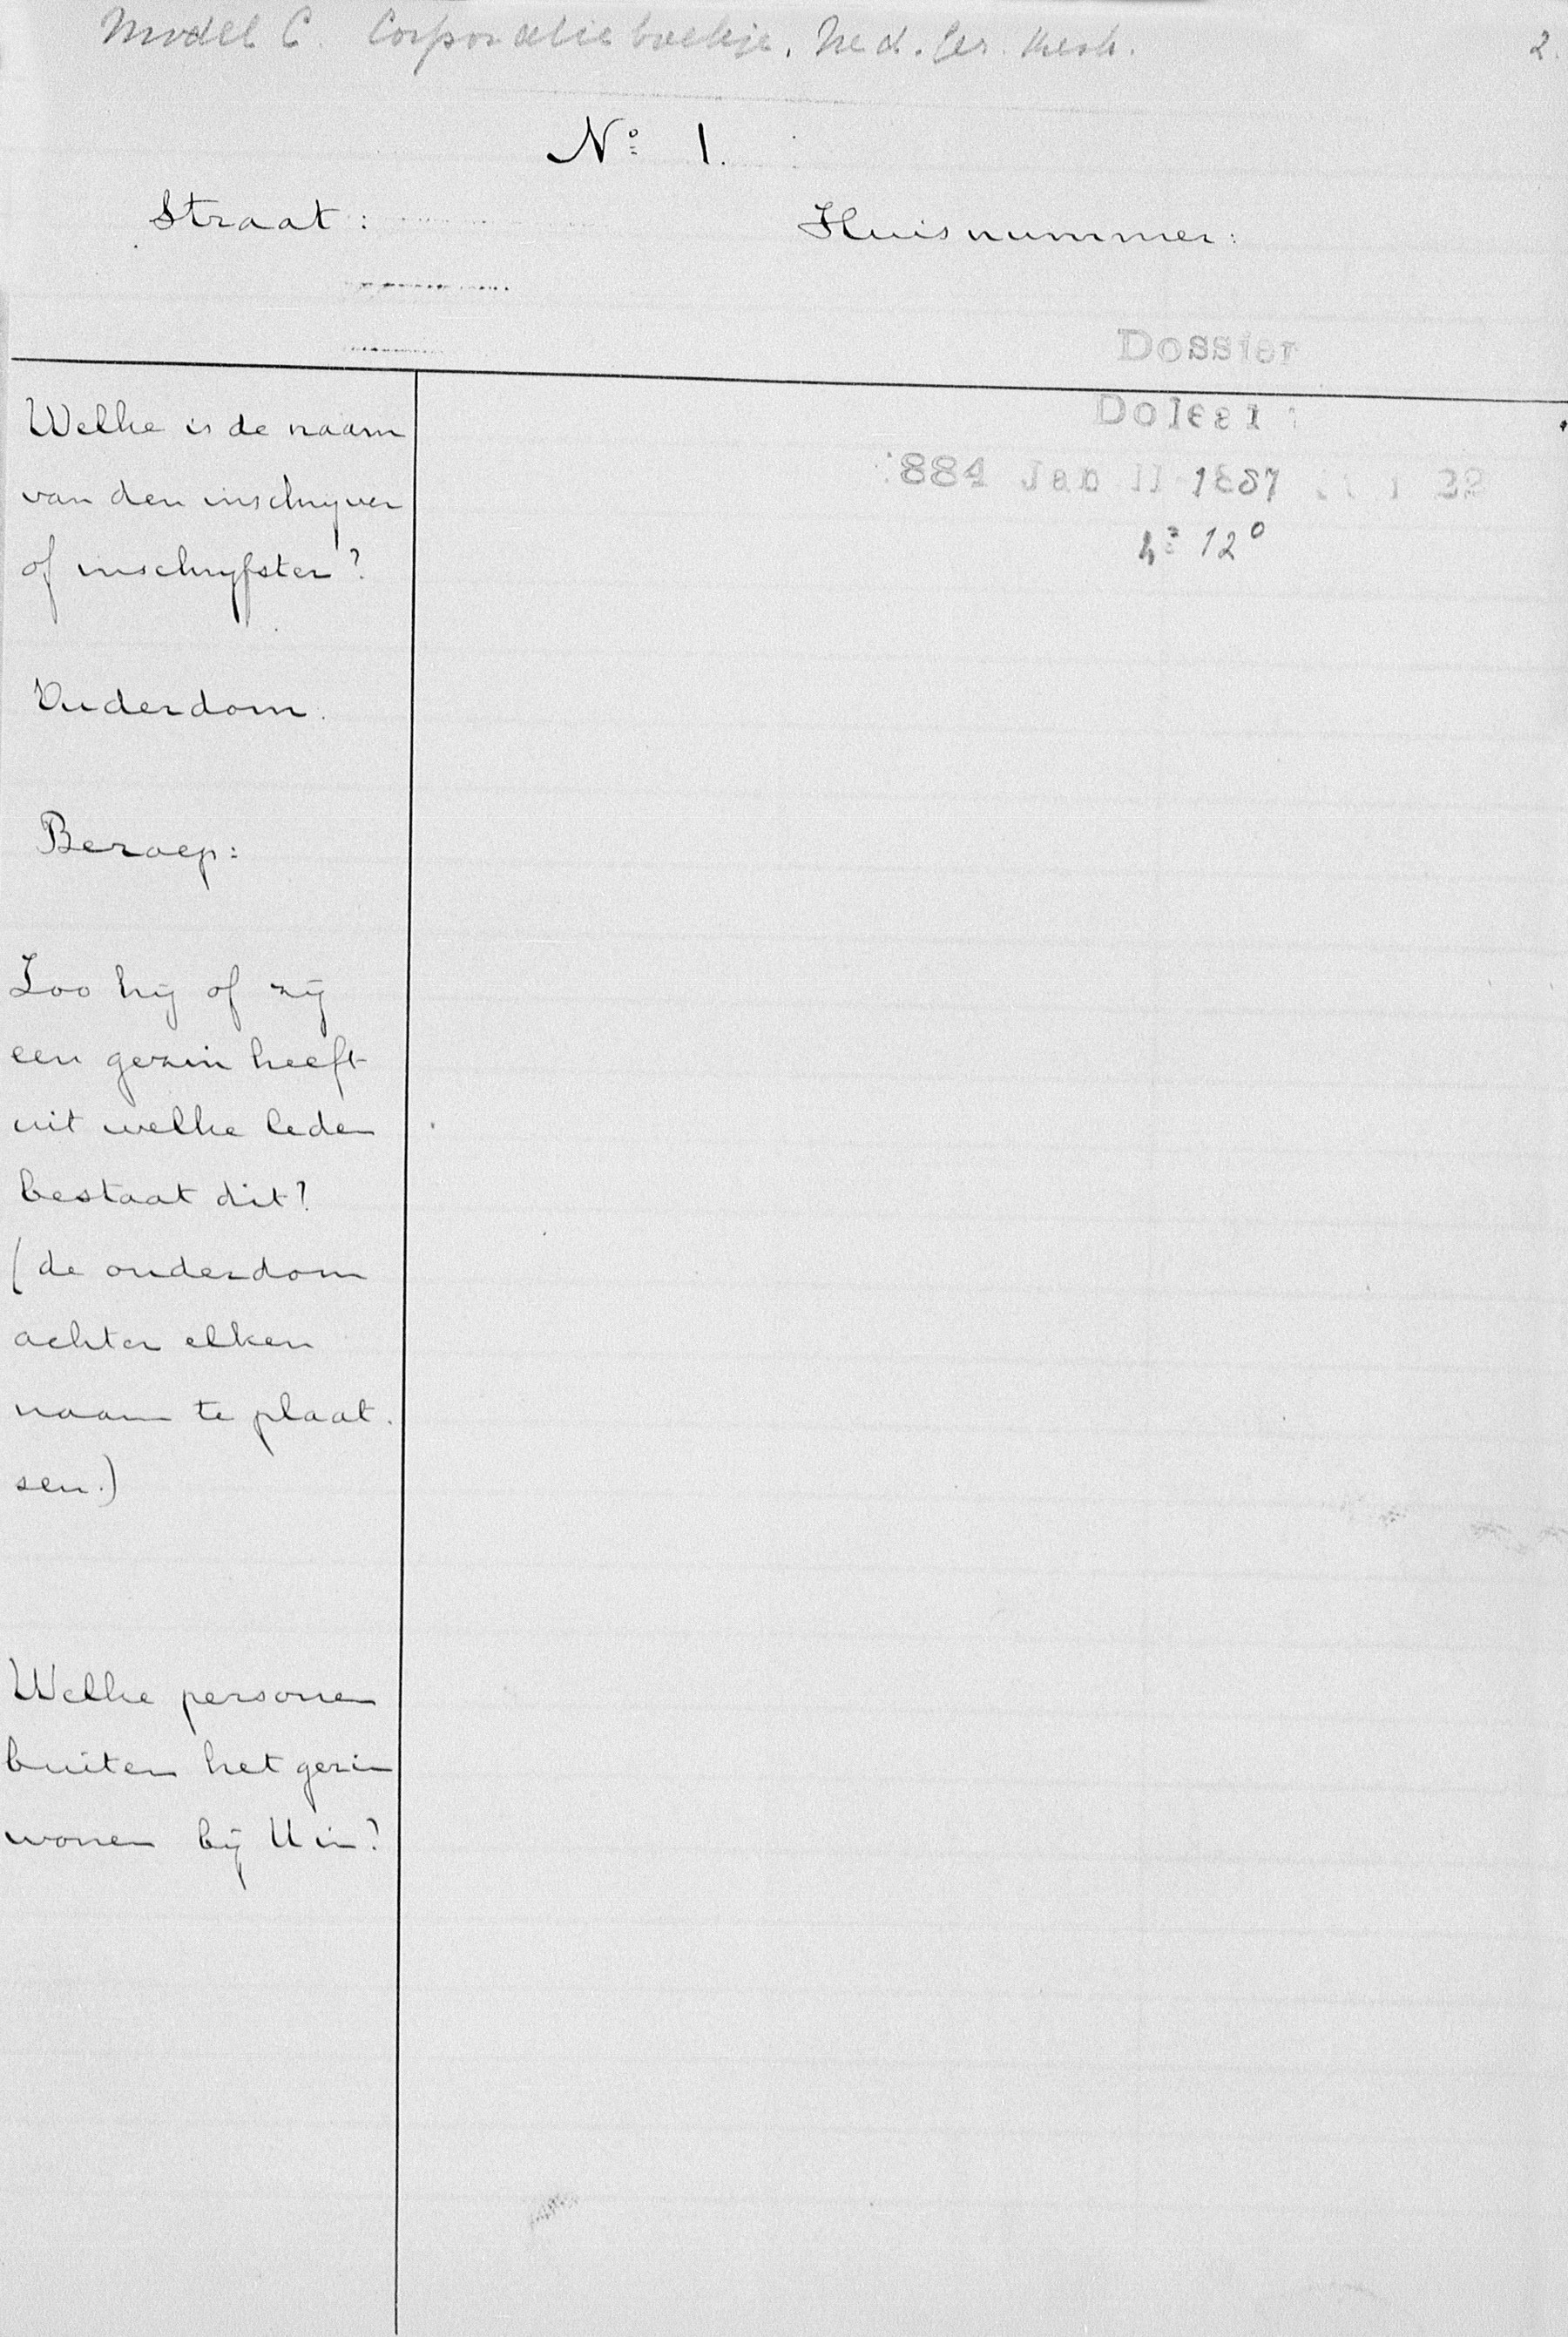 Model C. Corporatieboekje. Ned. Ger. Kerk. 2.
No 1.
Straat: Huisnummer:
Dossier
Doleal
Welke is de naam
van den inschrijver
of inschrijfster?
884 Jan 11 1887 22
4º 12º
Ouderdom.
Beroep:
Zoo hij of zij
een gezin heeft
uit welke leden
bestaat dit?
(de ouderdom
achter elken
naam te plaat.
sen.)
Welke personen
buiten het gezin
wonen bij U in?